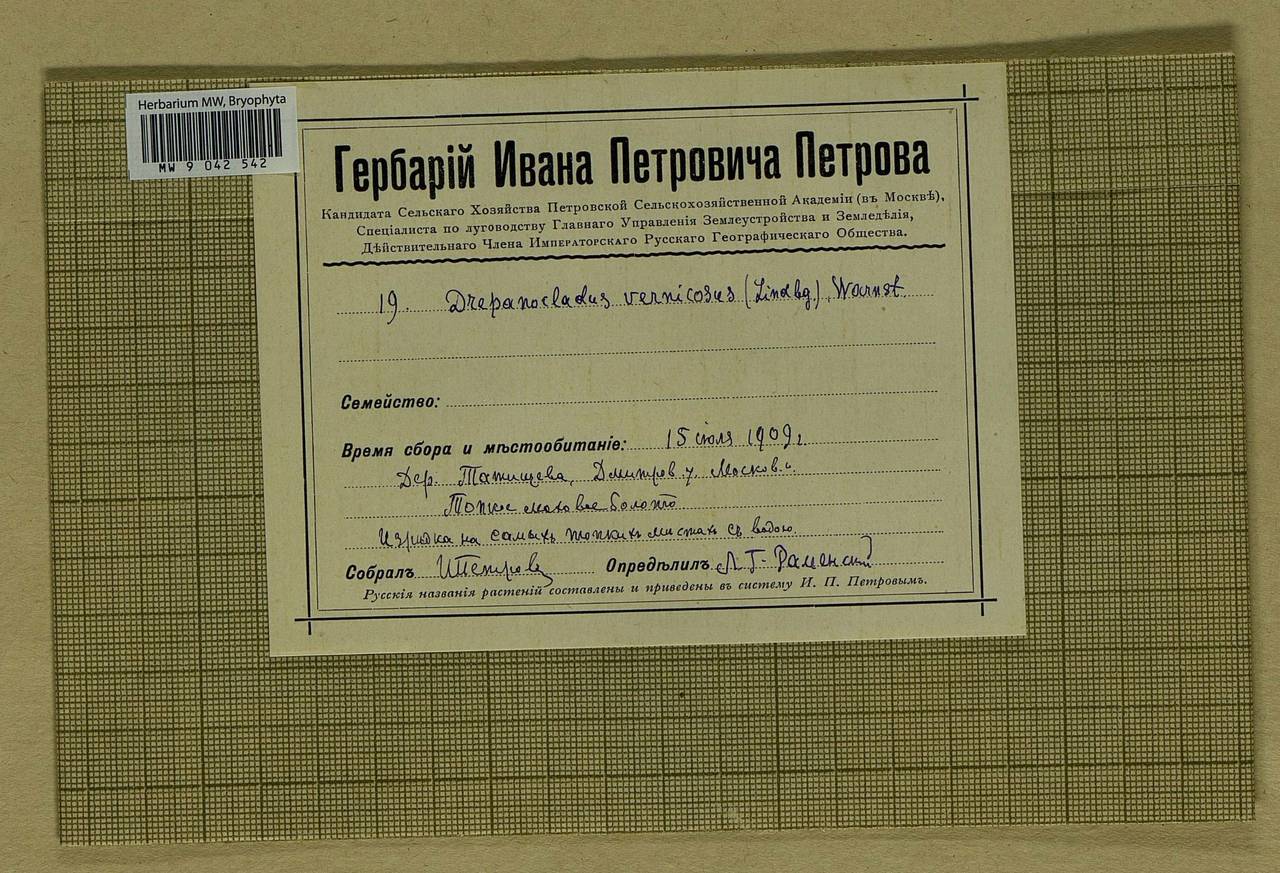 Herbarium MW, Bryophyta
MW 9 042 542
Гербарій Ивана Петровича Петрова
Кандидата Сельскаго Хозяйства Петровской Сельскохозяйственной Академіи (въ Москвѣ),
Спеціалиста по луговодству Главнаго Управленія Землеустройства и Земледѣлія,
Дѣйствительнаго Члена Императорскаго Русскаго Географическаго Общества.
19. Drepanocladus vernicosus (Lindbg.) Warnst.
Семейство:
Время сбора и мѣстообитаніе: 15 іюля 1909 г
Дер. Татищева, Дмитров у. Москов.
Топкое моховое болото
Изрѣдка на самыхъ топкихъ мѣстахъ съ водою
Собралъ ИПетровъ Опредѣлилъ Л. Г. Раменский
Русскія названія растеній составлены и приведены въ систему И. П. Петровымъ.